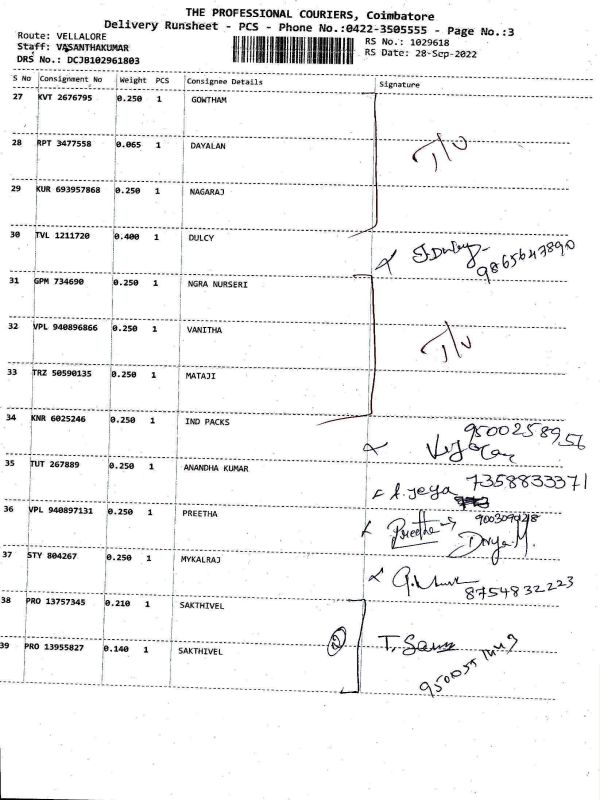 THE PROFESSIONAL COURIERS, Coimbatore
Delivery Runsheet - PCS - Phone No.:0422-3505555 - Page No.:3
Route: VELLALORE RS No.: 1029618
Staff: VASANTHAKUMAR RS Date: 28-Sep-2022
DRS No.: DCJB102961803
S No Consignment No Weight PCS Consignee Details Signature
27 KVT 2676795 0.250 1 GOWTHAM
28 RPT 3477558 0.065 1 DAYALAN T/V
29 KUR 693957868 0.250 1 NAGARAJ
30 TVL 1211720 0.400 1 DULCY
9865647890
31 GPM 734690 0.250 1 NGRA NURSERI
32 VPL 940896866 0.250 1 VANITHA T/V
33 TRZ 50590135 0.250 1 MATAJI
34 KNR 6025246 0.250 1 IND PACKS
9500258956
35 TUT 267889 0.250 1 ANANDHA KUMAR
7358833371
36 VPL 940897131 0.250 1 PREETHA
Preetha
Divya M.
37 STY 804267 0.250 1 MYKALRAJ
8754832223
38 PRO 13757345 0.210 1 SAKTHIVEL
2
39 PRO 13955827 0.140 1 SAKTHIVEL